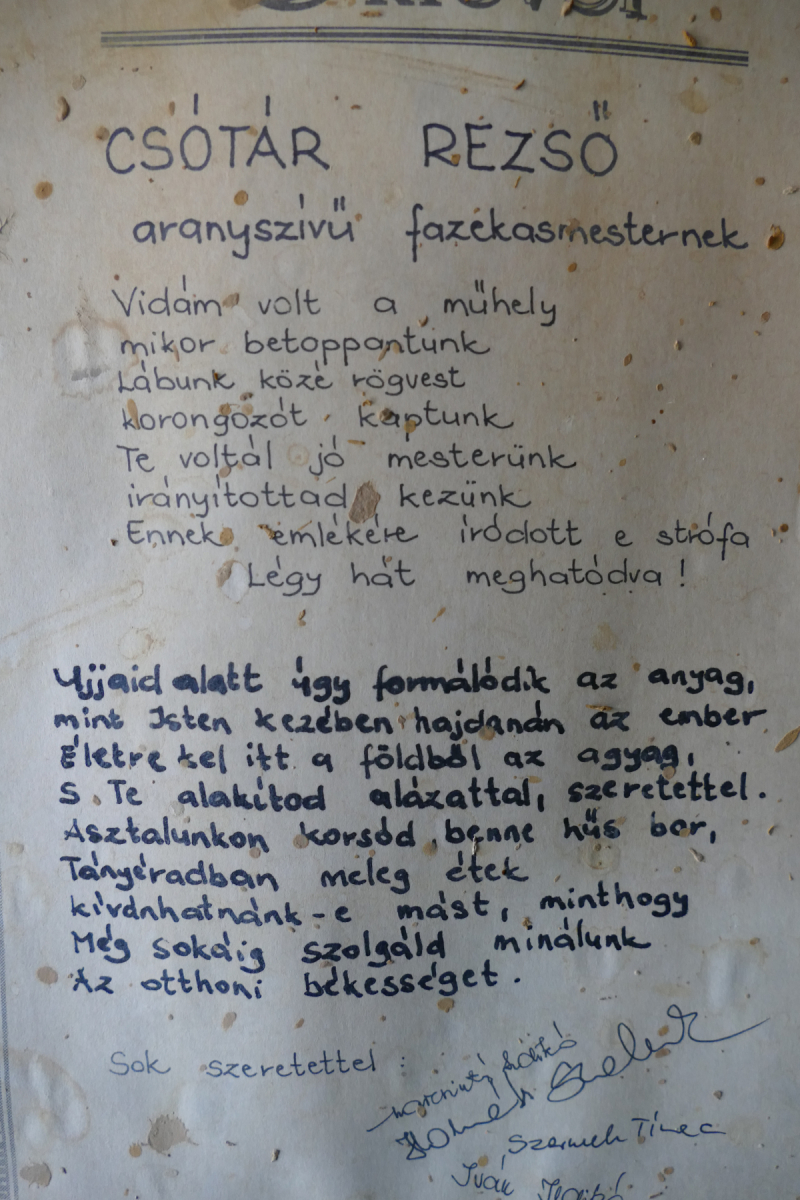 CSÓTÁR REZSŐ
aranyszívű fazekasmesternek
Vidám volt a műhely
mikor betoppantunk
Lábunk közé rögvest
korongozót kaptunk
Te voltál jó mesterünk
irányítottad kezünk
Ennek emlékére íródott e strófa
Légy hát meghatódva!
Ujjaid alatt úgy formálódik az anyag,
mint Isten kezében hajdanán az ember
Életre kel itt a földből az agyag,
S Te alakítod alázattal, szeretettel.
Asztalunkon korsód, benne hűs bor,
Tányéradban meleg étek
kívánhatnánk-e mást, minthogy
Még sokáig szolgáld minálunk
Az otthoni békességet.
Sok szeretettel:
Tímea
Iván